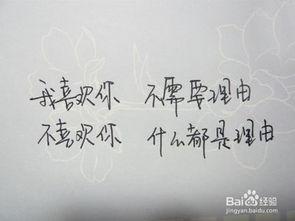 我喜欢你 不需要理由
不喜欢你 什么都是理由
Baidu经验
jingyan.baidu.com